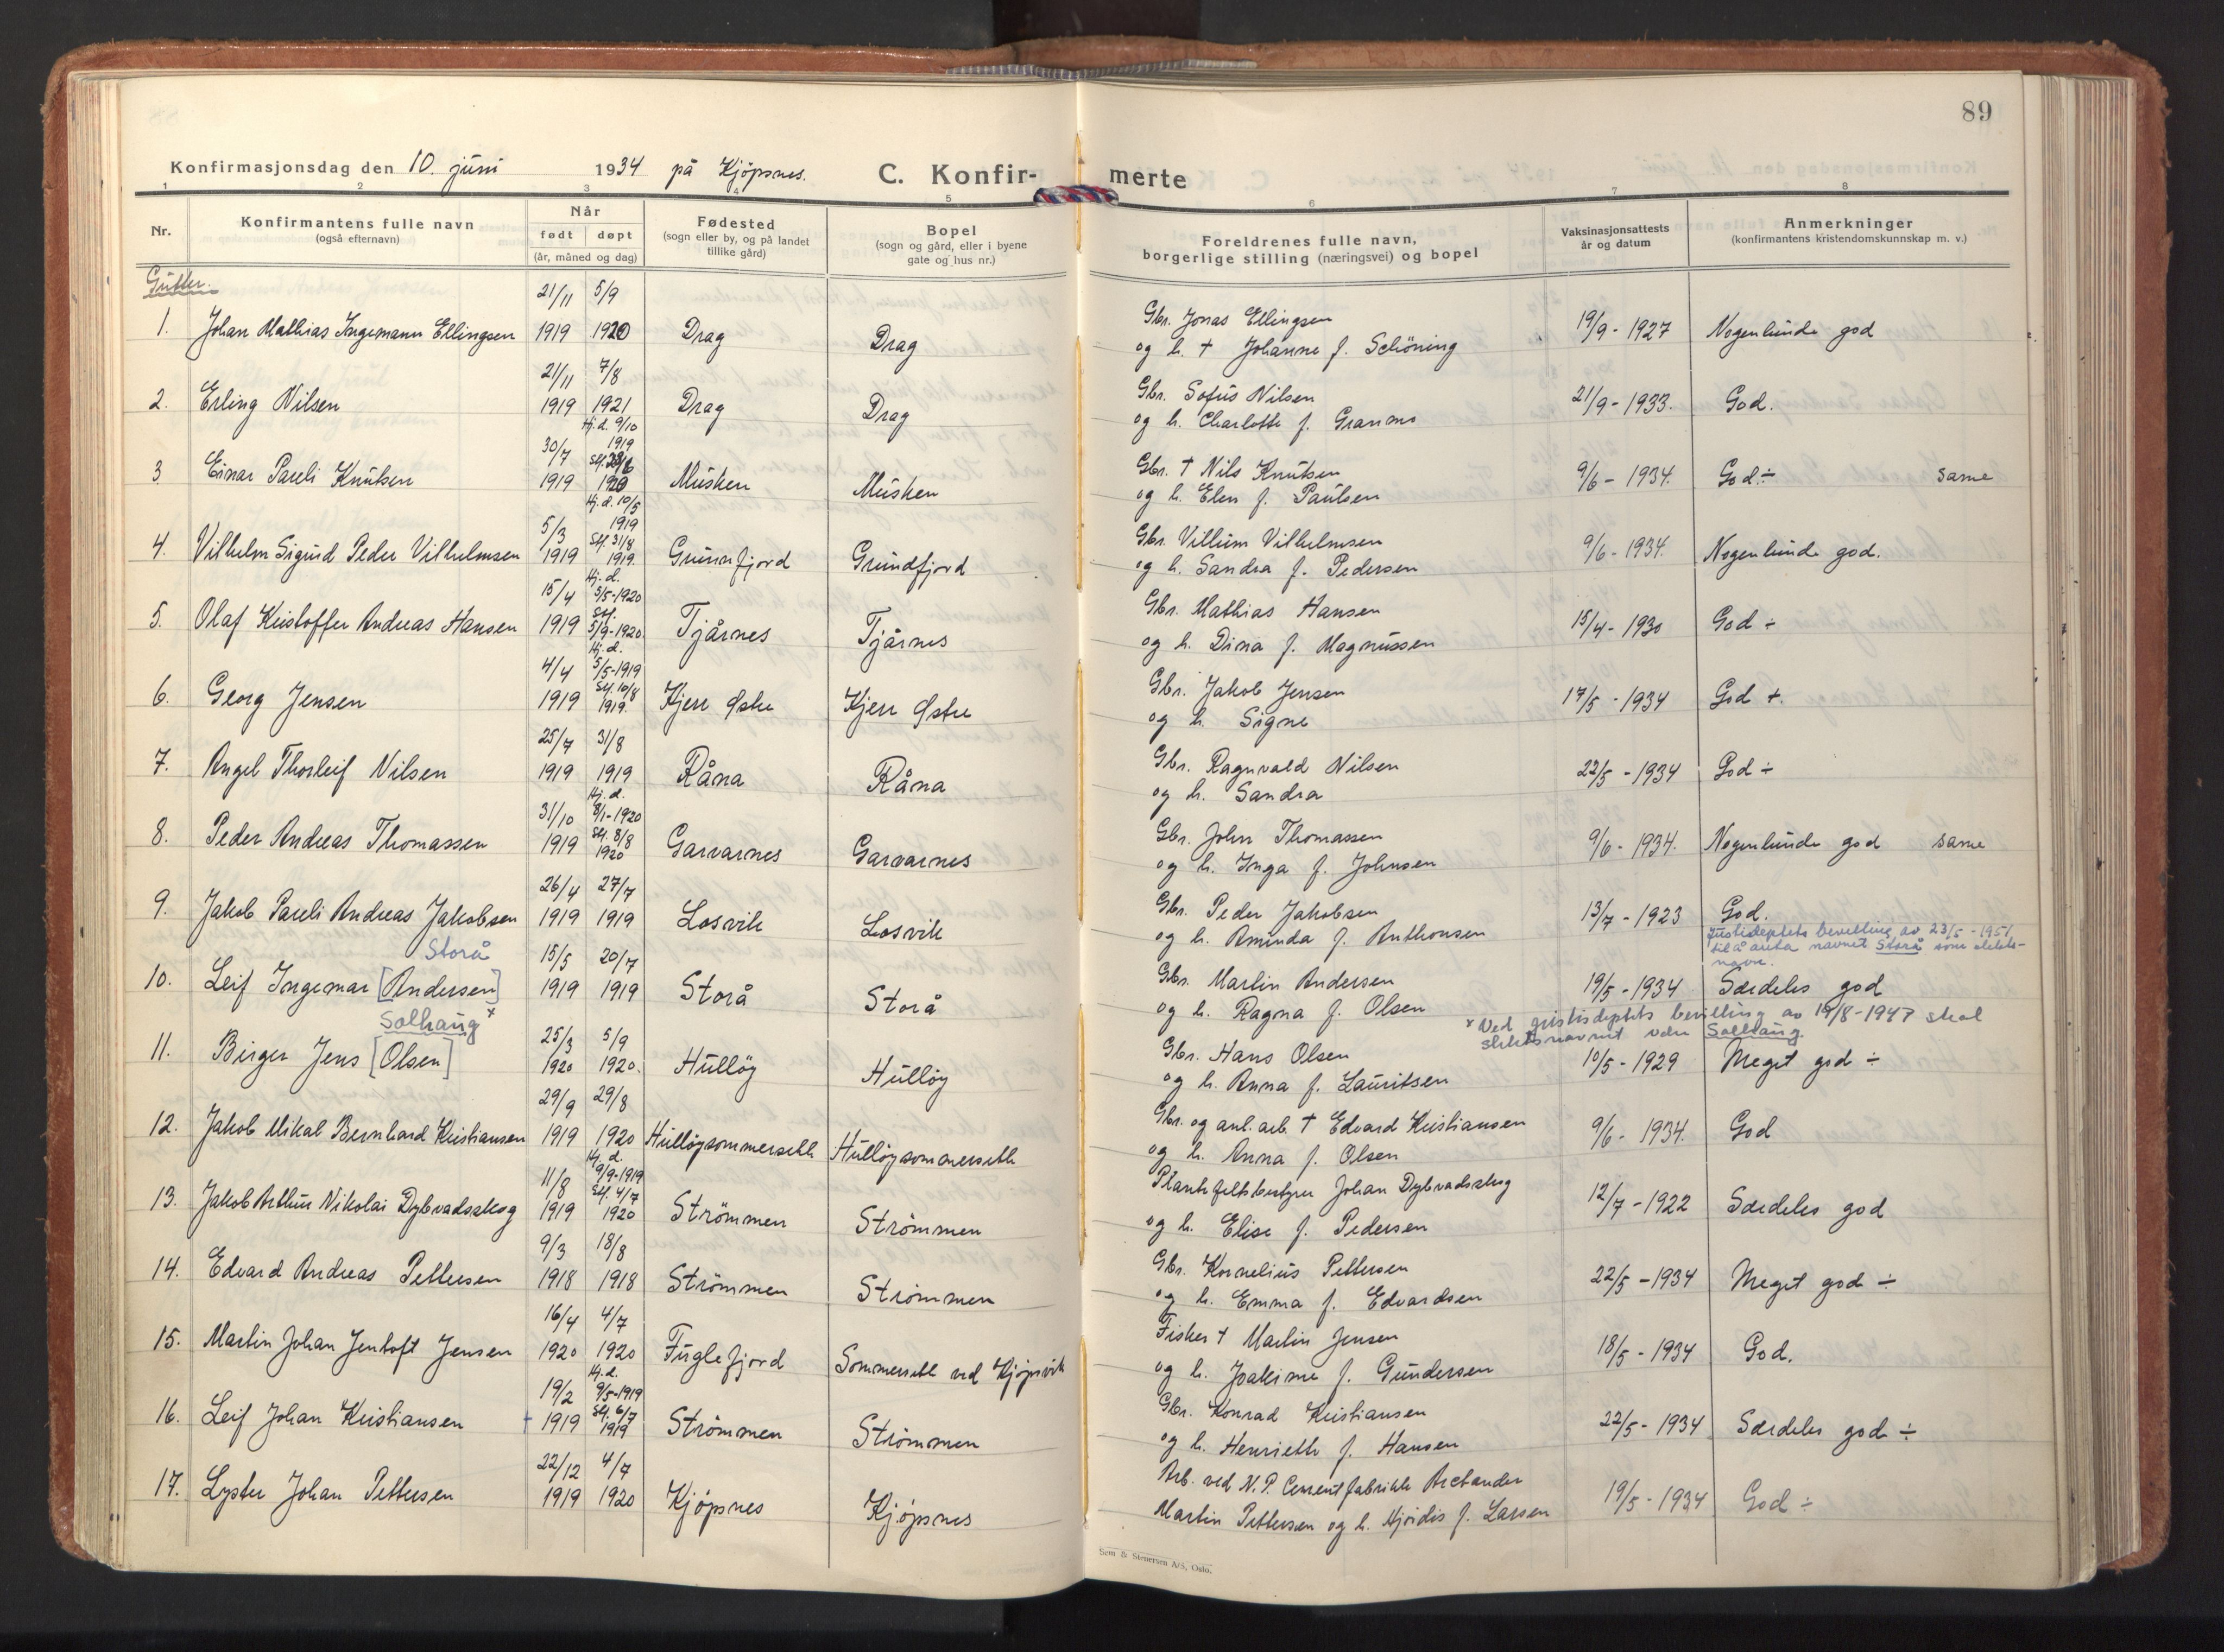 89
Konfirmasjonsdag den 10. juni 1934 på Kjøpsnes. C. Konfir- merte
1 2 3 4 5 6 7 8
Nr. Konfirmantens fulle navn (også efternavn) Når født døpt (år, måned og dag) Fødested (sogn eller by, og på landet tillike gård) Bopel (sogn og gård, eller i byene gate og hus nr.) Foreldrenes fulle navn, borgerlige stilling (næringsvei) og bopel Vaksinasjonsattests år og datum Anmerkninger (konfirmantens kristendomskunnskap m. v.)
Gutter.
1. Johan Mathias Ingemann Ellingsen 21/11 1919 5/9 1920 Drag Drag Gbr. Jonas Ellingsen og h. † Johanne f. Schöning 19/9 - 1927 Nogenlunde god
2. Erling Nilsen 21/11 1919 7/8 1921 Drag Drag Gbr. Sofus Nilsen og h. Charlotte f. Granmo 21/9 - 1933. God.
3 Einar Pauli Knutsen 30/7 1919 Hj. d. 9/10 1919 Stf. 1920 Musken Musken Gbr. † Nils Knutsen og h. Elen f. Paulsen 9/6 - 1934. God ÷ same
4. Vilhelm Sigurd Peder Vilhelmsen 5/3 1919 Hj. d. 10/5 1919 Stf. 31/8 1919. Grunnfjord Grundfjord Gbr. Villum Vilhelmsen og h. Sandra f. Pedersen 9/6 - 1934. Nogenlunde god.
5. Olaf Kristoffer Andreas Hansen 15/4 1919 Hj. d. 5/5-1920 Stf. 5/9-1920. Tjårnes Tjårnes Gbr. Mathias Hansen og h. Dina f. Magnussen 15/4 - 1930 God ÷
6. Georg Jensen 4/4 1919 Hj. d. 5/5-1919 Stf. 10/8 1919. Kjerr østre Kjerr østre Gbr. Jakob Jensen og h. Signe 17/5 - 1934 God +.
7. Angel Thorleif Nilsen 25/7 1919 31/8 1919 Råna Råna Gbr. Ragnvald Nilsen og h. Sandra 22/5 - 1934 God ÷
8. Peder Andreas Thomassen 31/10 1919 Hj. d. 8/1-1920 Stf. 8/8 1920 Garvarnes Garvarnes Gbr. John Thomassen og h. Inga f. Johnsen 9/6 - 1934. Nogenlunde god same
9. Jakob Pauli Andreas Jakobsen 26/4 1919 27/7 1919 Losvik Losvik Gbr. Peder Jakobsen og h. Aminda f. Anthonsen 13/7 - 1923 God.
Justisdeptets bevilling av 23/5 - 1951,
til å anta navnet Storå som slekts-
navn.
Storå
10. Leif Ingemar [Andersen] 15/5 1919 20/7 1919 Storå Storå Gbr. Martin Andersen og h. Ragna f. Olsen 19/5 - 1934 Særdeles god
* Ved justisdeptets bevilling av 19/8-1947 skal
slektsnavnet være Solhaug.
Solhaug *
11. Birger Jens [Olsen] 25/3 1920 5/9 1920. Hulløy Hulløy Gbr. Hans Olsen og h. Anna f. Lauritsen 10/5 - 1929 Meget god ÷
12. Jakob Mikal Bernhard Kristiansen 29/9 1919 29/8 1920 Hulløysommersett Hulløysommersett Gbr. og anl. arb. † Edvard Kristiansen og h. Anna f. Olsen 9/6 - 1934. God
13. Jakob Arthur Nikolai Dybvadskog 11/8 1919 Hj. d. 9/9-1919 Stf. 4/7 1920 Strömmen Strömmen Plantefeltsbestyrer Johan Dybvadskog og h. Elise f. Pedersen 12/7 - 1922 Særdeles god
14. Edvard Andreas Pettersen 9/3 1918 18/8 1918 Strömmen Strömmen Gbr. Kornelius Pettersen og h. Emma f. Edvardsen 22/5 - 1934 Meget god ÷
15. Martin Johan Jentoft Jensen 16/4 1920 4/7 1920 Fuglefjord Sommersett ved Kjøpsvik Fisker † Martin Jensen og h. Joakime f. Gundersen 18/5 - 1934 God.
16. Leif Johan Kristiansen † 19/2 1919 Hj. d. 9/5-1919 Stf. 6/7 1919 Strömmen Strömmen Gbr. Konrad Kristiansen og h. Henriette f. Hansen 22/5 - 1934 Særdeles god ÷
17. Lyster Johan Pettersen 22/12 1919 4/7 1920 Kjøpsnes Kjøpsnes Arb. ved N. P. Cementfabrikk Martin Pettersen og h. Hjördis f. Larsen 19/5 - 1934 God ÷
Sem & Stenersen A/S, Oslo.